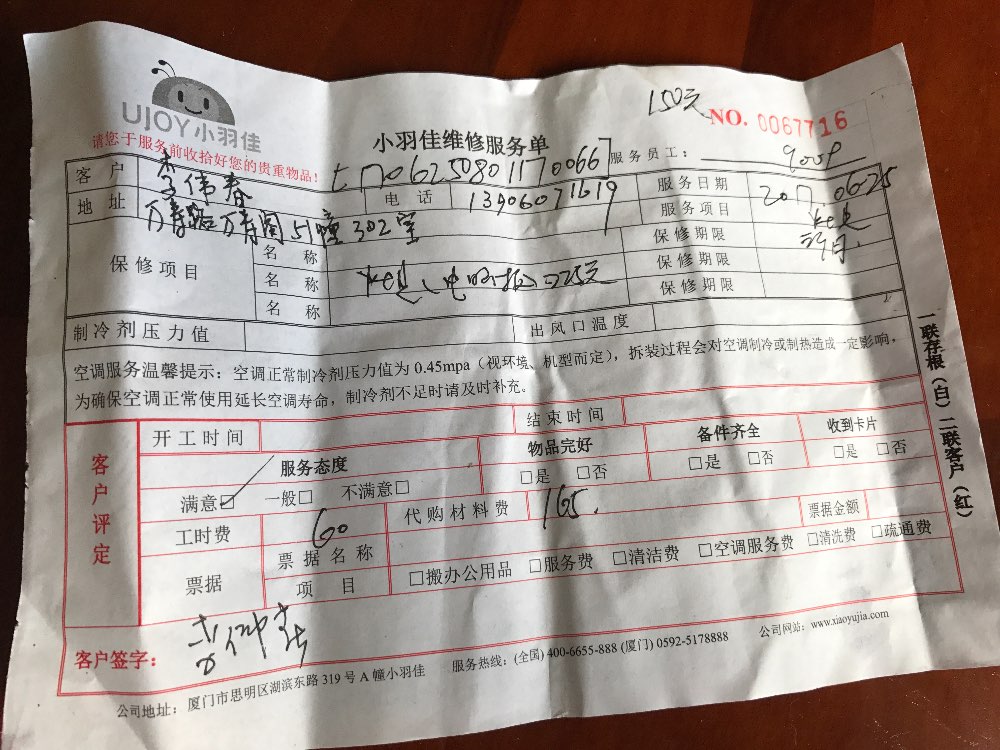 UJOY小羽佳
请您于服务前收拾好您的贵重物品!
150元
小羽佳维修服务单
NO. 0067716
1706250801170066
服务员工:
客户 李伟春
电话 13906071619
服务日期 2017.06.25
地址 万寿路万寿阁51幢302室
服务项目
保修项目
名称
保修期限
名称
保修期限
名称
保修期限
制冷剂压力值
出风口温度
空调服务温馨提示:空调正常制冷剂压力值为 0.45mpa(视环境、机型而定),拆装过程会对空调制冷或制热造成一定影响,
为确保空调正常使用延长空调寿命,制冷剂不足时请及时补充。
一联存根(白)二联客户(红)
客户评定
开工时间
结束时间
服务态度
物品完好
备件齐全
收到卡片
满意☑ 一般□ 不满意□
□是 □否
□是 □否
□是 □否
工时费 60
代购材料费 165.
票据金额
票据
票据名称
项目
□搬办公用品 □服务费 □清洁费 □空调服务费 □清洗费 □疏通费
客户签字:
公司地址:厦门市思明区湖滨东路 319 号 A 幢小羽佳 服务热线:(全国) 400-6655-888 (厦门) 0592-5178888 公司网站:www.xiaoyujia.com